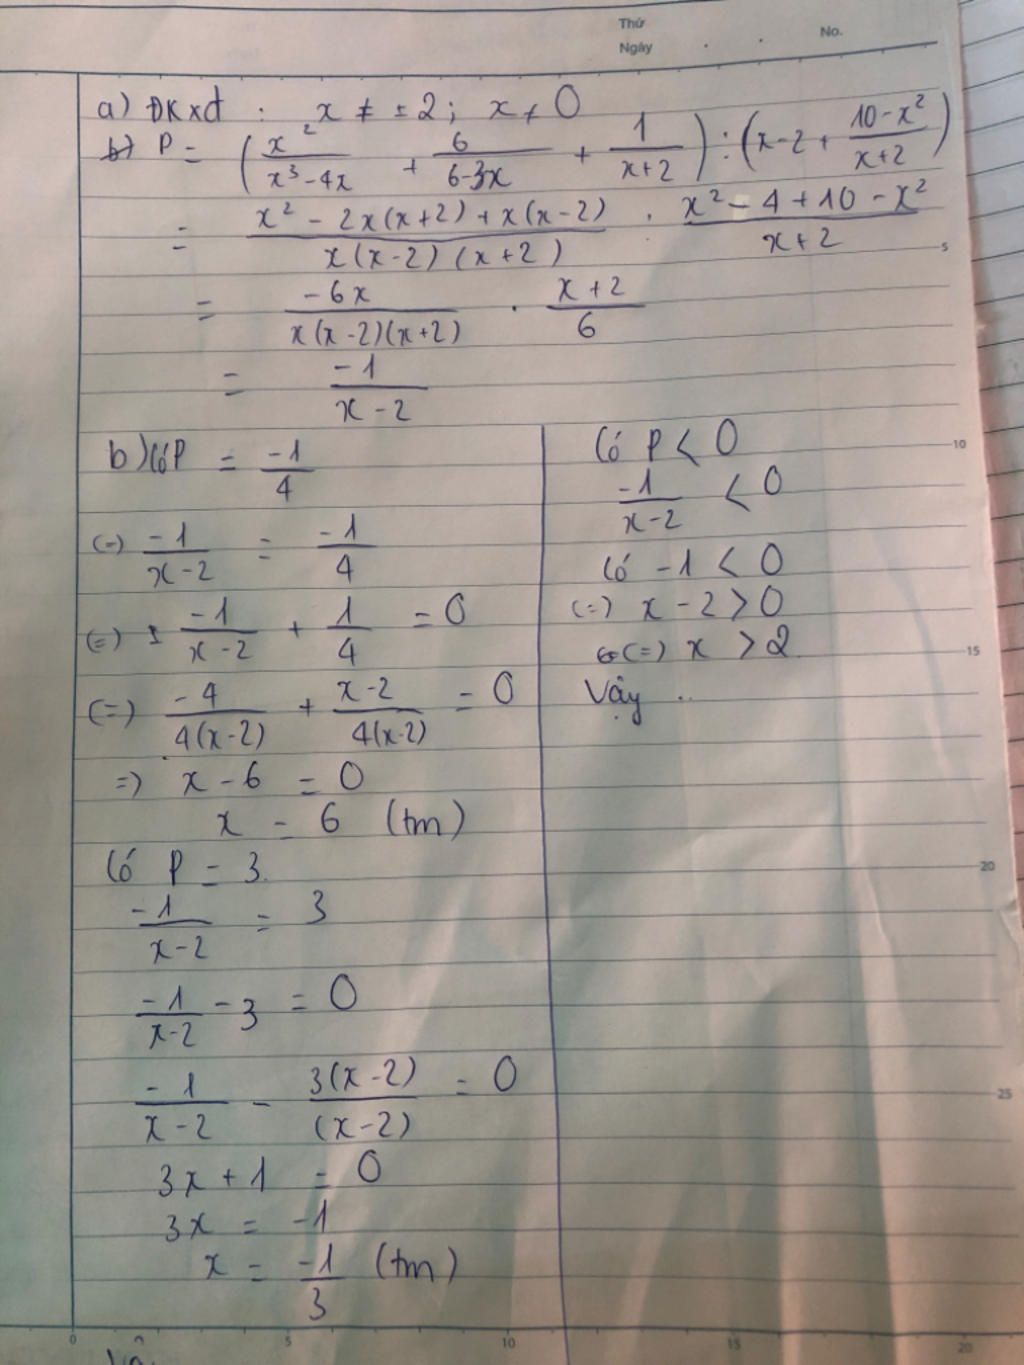 Thứ
Ngày . . No.
a) ĐKxđ : x ≠ ±2; x ≠ 0
b) P = (x²/(x³-4x) + 6/(6-3x) + 1/(x+2)) : (x-2 + (10-x²)/(x+2))
= (x² - 2x(x+2) + x(x-2))/(x(x-2)(x+2)) . (x² - 4 + 10 - x²)/(x+2)
5
= (-6x)/(x(x-2)(x+2)) . (x+2)/6
= -1/(x-2)
b) Có P = -1/4
(=) -1/(x-2) = -1/4
(=) -1/(x-2) + 1/4 = 0
(=) -4/(4(x-2)) + (x-2)/(4(x-2)) = 0
=) x - 6 = 0
x = 6 (tm)
Có P = 3.
-1/(x-2) = 3
-1/(x-2) - 3 = 0
-1/(x-2) - 3(x-2)/(x-2) = 0
3x + 1 = 0
3x = -1
x = -1/3 (tm)
Có P < 0
10
-1/(x-2) < 0
Có -1 < 0
(=) x - 2 > 0
(=) x > 2
15
Vậy ..
20
25
0 5 10 15 20